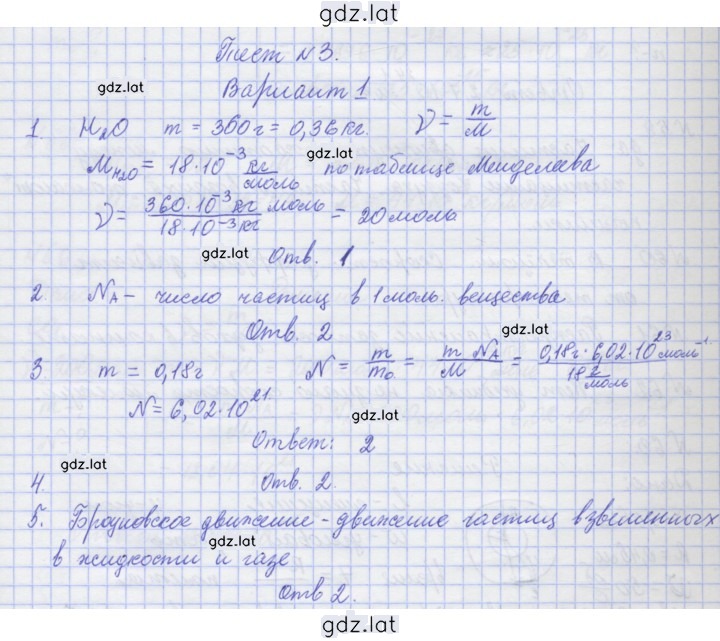 gdz.lat
Тест №3.
gdz.lat
Вариант 1
1. H₂O m = 360г = 0,36кг. ν = m/M
gdz.lat
M_H₂O = 18·10⁻³ кг/моль по таблице Менделеева
ν = 360·10⁻³кг моль / 18·10⁻³кг = 20 моль
gdz.lat
Отв. 1
2. N_A – число частиц в 1 моль. вещества
gdz.lat
Отв. 2
3 m = 0,18г N = m/m₀ = m N_A/M = 0,18г·6,02·10²³моль⁻¹ / 18 г/моль
N = 6,02·10²¹
gdz.lat
Ответ: 2
gdz.lat
4. Отв. 2.
5. Броуновское движение – движение частиц взвешенных
gdz.lat
в жидкости и газе
Отв 2.
gdz.lat